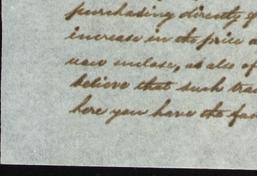 purchasing directly of
increase in the price
now enclose, as also of
believe that such
here you have the